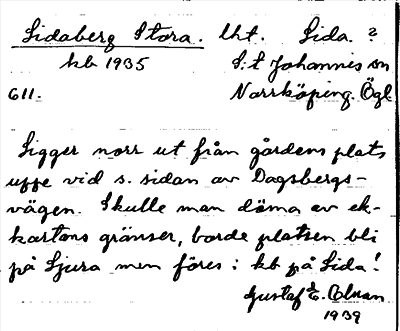 Sidaberg Stora. lht. Sida. ?
kb 1935 S:t Johannis sn
611. Norrköping. Ögl
Ligger norr ut från gårdens plats
uppe vid s. sidan av Dagsbergs-
vägen. Skulle man döma av ek-
kartans gränser, borde platsen bli
på Ljura men föres i kb på Sida!
Gustaf E.
1939